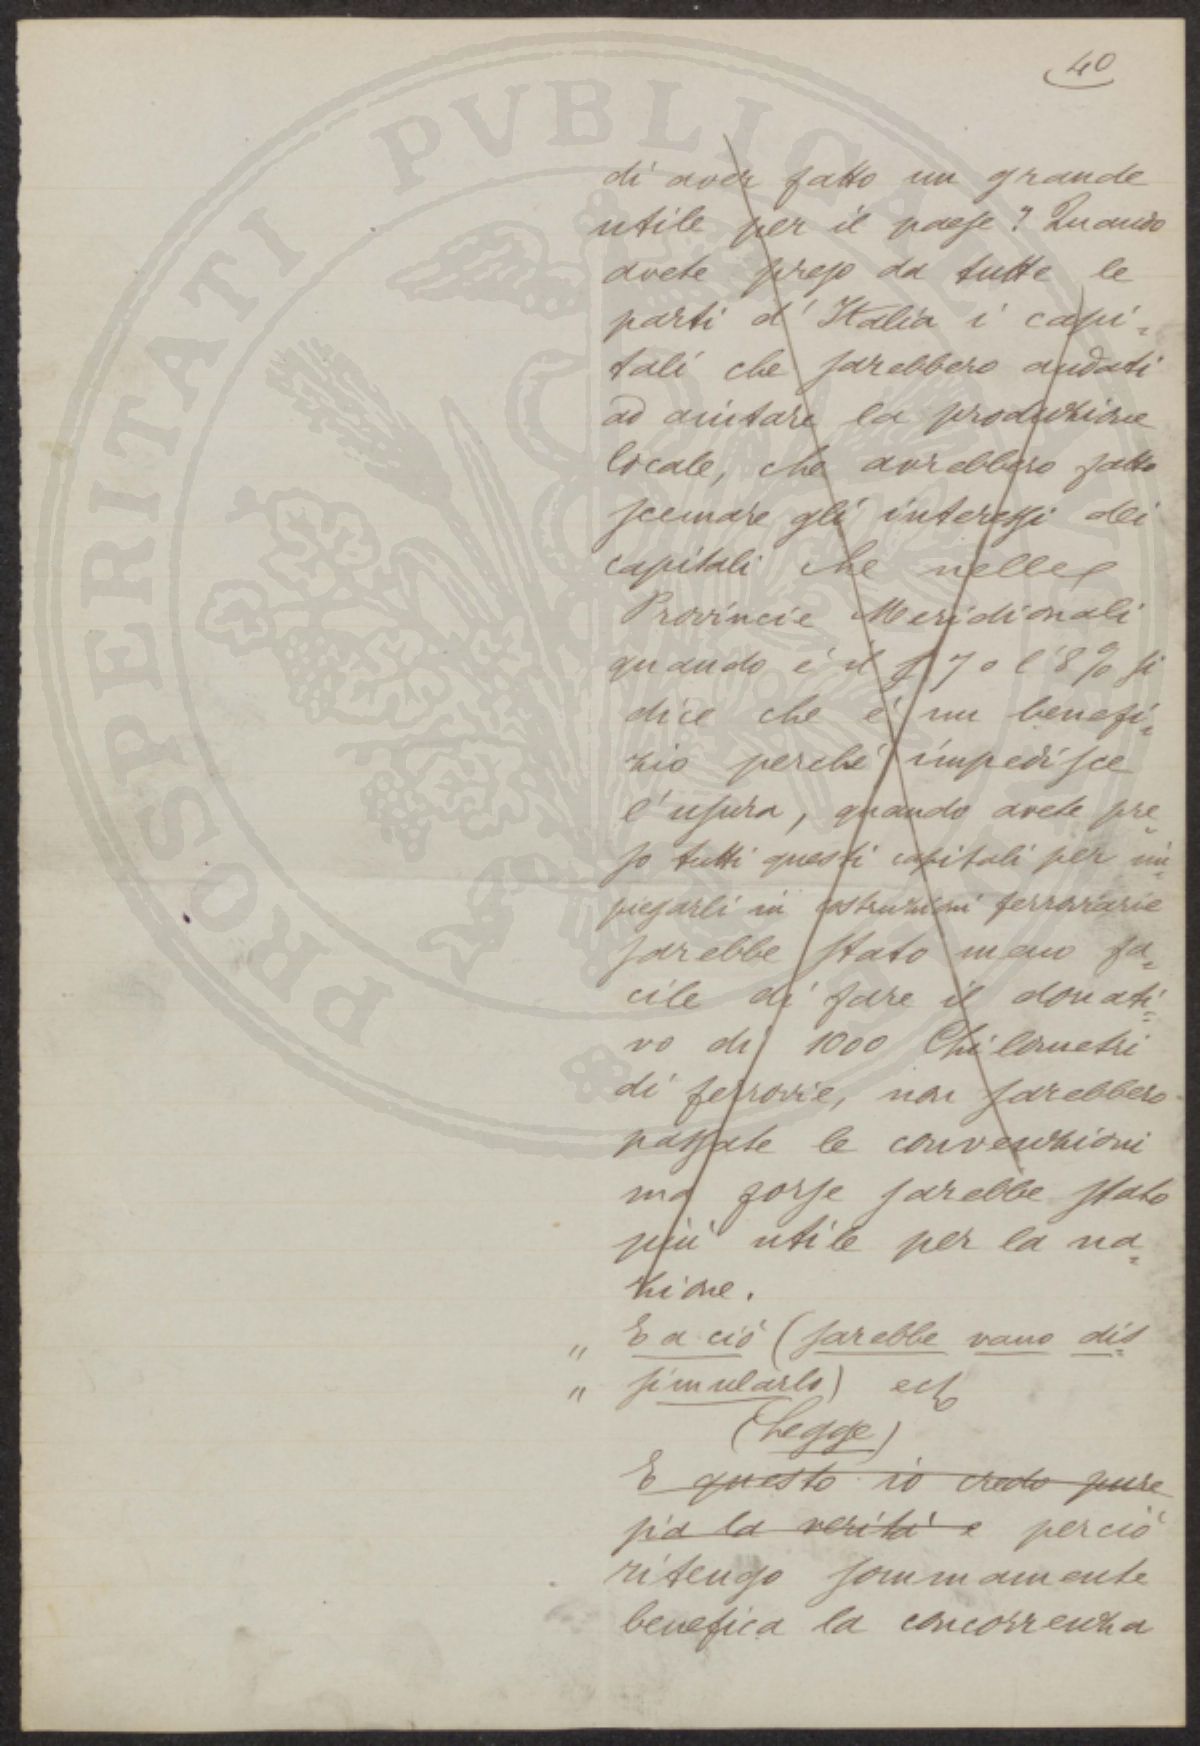 40
di aver fatto un grande
utile per il paese? Quando
avete preso da tutte le
parti d'Italia i capi=
tali che sarebbero andati
ad aiutare la produzione
locale, che avrebbero fatto
scemare gli interessi dei
capitali che nelle
Provincie Meridionali
quando è il 7 o l'8% si
dice che è un benefi=
zio perché impedisce
l'usura, quando avete pre=
so tutti questi capitali per im=
piegarli in costruzioni ferroviarie
sarebbe stato meno fa=
cile di fare il donati=
vo di 1000 Chilometri
di ferrovie, non sarebbero
passate le convenzioni
ma forse sarebbe stato
più utile per la na=
zione.
" E a ciò (sarebbe vano dis=
" simularlo) ect
(Legge)
E questo io credo pure
sia la verità e perciò
ritengo sommamente
benefica la concorrenza
PROSPERITATI PVBLICAE